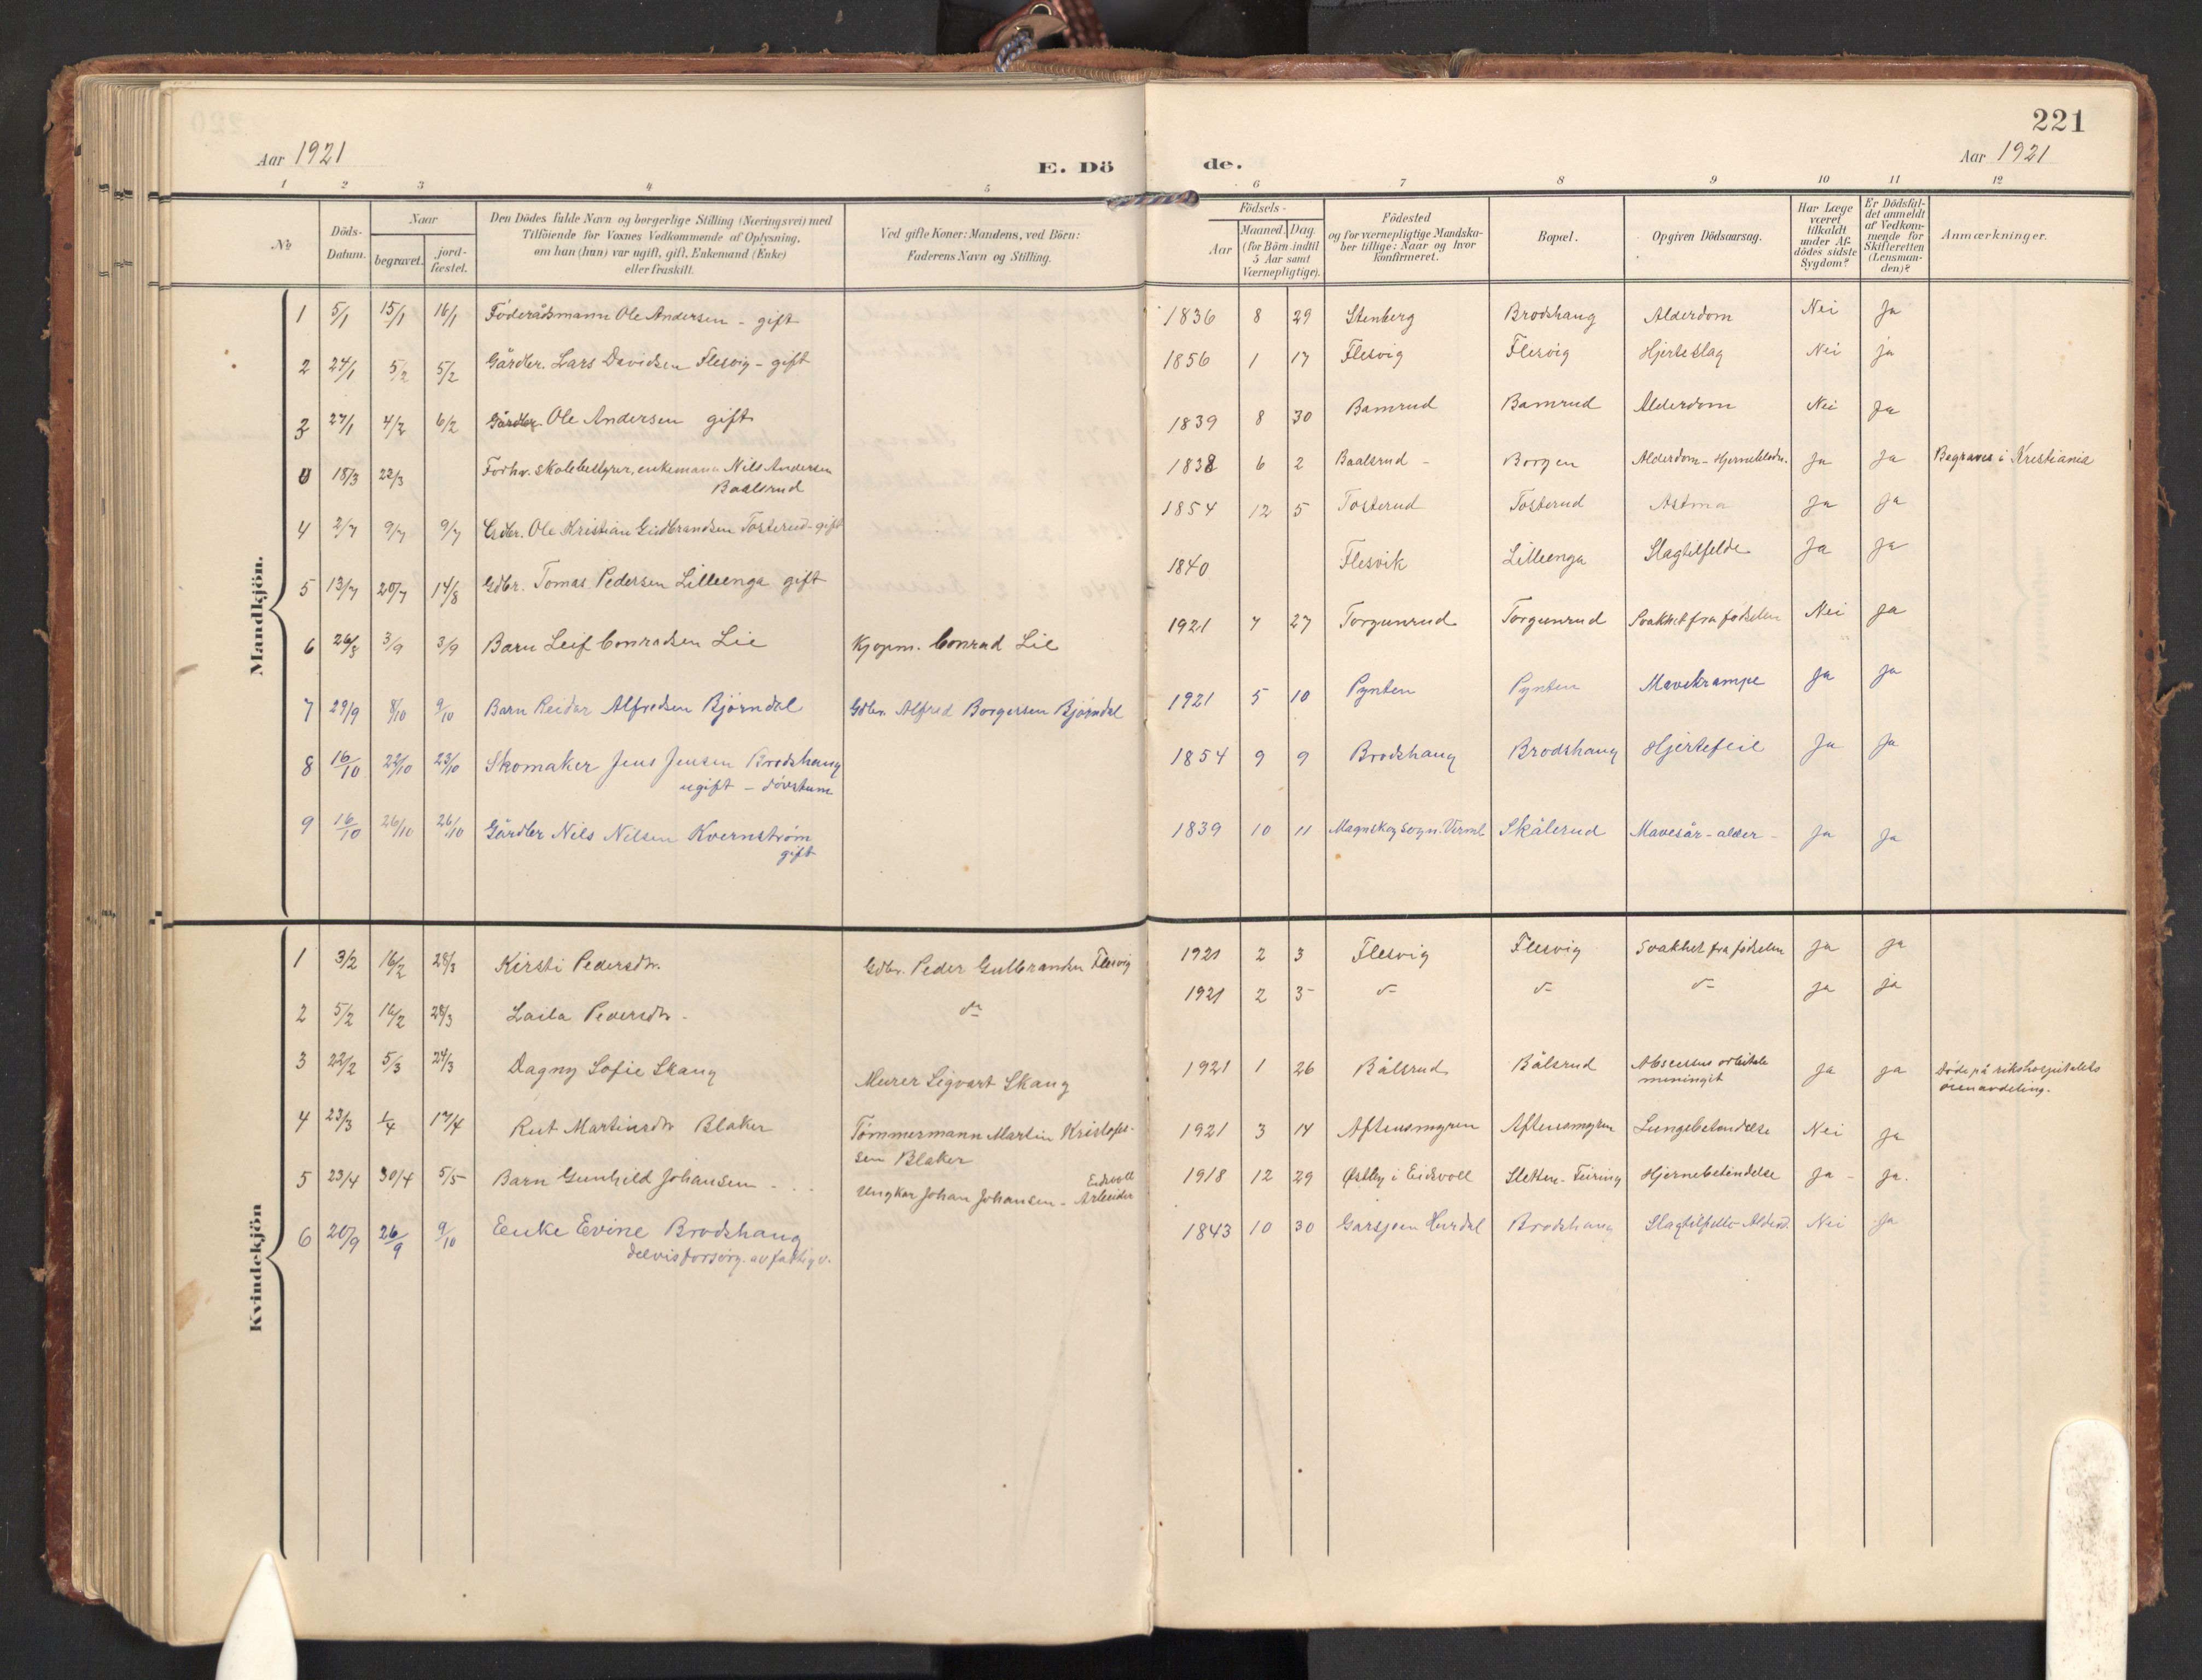 221
Aar 1921
E. Dö
de.
Aar 1921
1 2 3 4 5 6 7 8 9 10 11 12
No
Döds-Datum.
Naar
begravet.
jord-fæstet.
Den Dödes fulde Navn og borgerlige Stilling (Næringsvei) med
Tilföiende for Voxnes Vedkommende af Oplysning,
om han (hun) var ugift, gift, Enkemand (Enke)
eller fraskilt.
Ved gifte Koner: Mandens, ved Börn:
Faderens Navn og Stilling.
Födsels-
Aar
Maaned. Dag
(for Börn indtil
5 Aar samt
Værnepligtige).
Födested
og for værnepligtige Mandska-
ber tillige: Naar og hvor
konfirmeret.
Bopæl.
Opgiven Dödsaarsag.
Har Læge
været
tilkaldt
under Af-
dödes sidste
Sygdom?
Er Dödsfal-
det anmeldt
af Vedkom-
mende for
Skifteretten
(Lensman-
den)?
Anmærkninger.
Mandkjön.
1 5/1 15/1 16/1 Föderådsmann Ole Andersen - gift 1836 8 29 Stenberg Brodshaug Alderdom Nei Ja
2 24/1 5/2 5/2 Gårdbr. Lars Davidsen Flesvig - gift 1856 1 17 Flesvig Flesvig Hjerteslag Nei ja
3 27/1 4/2 6/2 Gårdbr. Ole Andersen gift 1839 8 30 Bamrud Bamrud Alderdom Nei Ja
0 18/3 22/3 Forhv. skolebestyrer, enkemann Nils Andersen
Baalsrud 1838 6 2 Baalsrud - Borgen Alderdom - Ja Ja Begraves i Kristiania
4 2/7 9/7 9/7 Gdbr. Ole Kristian Gudbrandsen Tosterud - gift 1854 12 5 Tosterud Tosterud Astma Ja Ja
5 13/7 20/7 14/8 Gdbr. Tomas Pedersen Lilleenga gift 1840 Flesvik Lilleenga Slagtilfelde Ja Ja
6 26/8 3/9 3/9 Barn Leif Conradsen Lie Kjøpm. Conrad Lie 1921 7 27 Torgunrud Torgunrud Svakhet fra fødselen Nei Ja
7 29/9 8/10 9/10 Barn Reidar Alfredsen Bjørndal Gdbr. Alfred Borgersen Bjørndal 1921 5 10 Pynten Pynten Mavekrampe Ja Ja
8 16/10 22/10 23/10 Skomaker Jens Jensen Brodshaug
ugift - døvstum 1854 9 9 Brodshaug Brodshaug Hjertefeil Ja Ja
9 16/10 26/10 26/10 Gårdbr Nils Nilsen Kvernstrøm
gift 1839 10 11 Magnskog sogn. Verml. Skålerud Mavesår - alder - Ja Ja
Kvindekjön
1 3/2 16/2 28/3 Kirsti Pedersdtr. Gdbr. Peder Gulbrandsen Flesvig 1921 2 3 Flesvig Flesvig Svakhet fra fødselen Ja Ja
2 5/2 16/2 28/3 Laila Pedersdtr - do 1921 2 3 do do do Ja ja
3 22/2 5/3 24/3 Dagny Sofie Skaug Murer Sigvart Skaug 1921 1 26 Bålsrud Bålsrud Abscessus orbitale
meningit Ja Ja Døde på rikshospitalets
ørenavdeling.
4 23/3 1/4 17/4 Rut Martinsdtr Blaker Tömmermann Martin Kristofer-
sen Blaker 1921 3 14 Aftensmyren Aftensmyren Lungebetendelse Nei Ja
5 23/4 30/4 5/5 Barn Gunhild Johansen - Ungkar Johan Johansen - Eidsvoll
Arbeider 1918 12 29 Østby i Eidsvoll Sletten - Feiring Hjernebetendelse Ja - Ja.
6 20/9 26/9 9/10 Enke Evine Brodshaug
delvis forsørg. av fattigv. 1843 10 30 Garsjøen Hurdal Brodshaug Slagtilfelle Alderd. Nei Ja